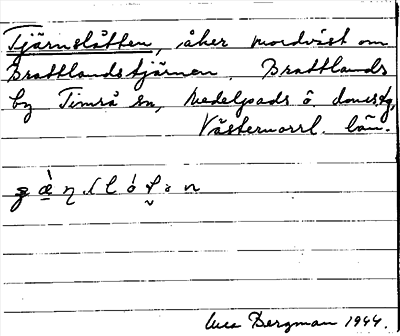 Tjärnslåtten, åker nordväst om
Brattlandstjärnen, Brattlands
by Timrå sn, Medelpads ö. domsg,
Västernorrl. län.
Bergman 1944.